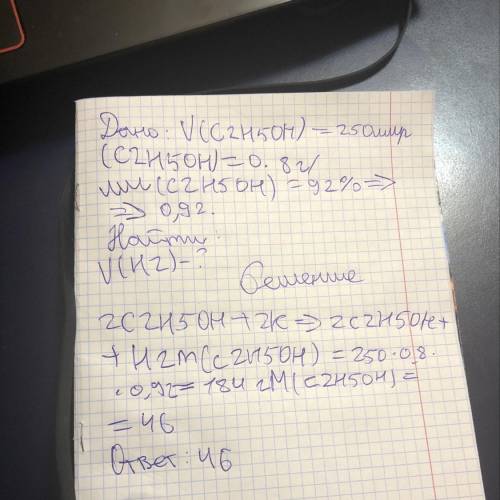 Дано: V(C2H5OH) = 250мл р
(C2H5OH) = 0. 8 г/
мл (C2H5OH) = 92% =>
=> 0,92.
Найти:
V(H2) - ?
Решение
2C2H5OH + 2K => 2C2H5OK +
+ H2 m(C2H5OH) = 250 · 0,8 ·
· 0,92 = 184 г M(C2H5OH) =
= 46
Ответ: 46